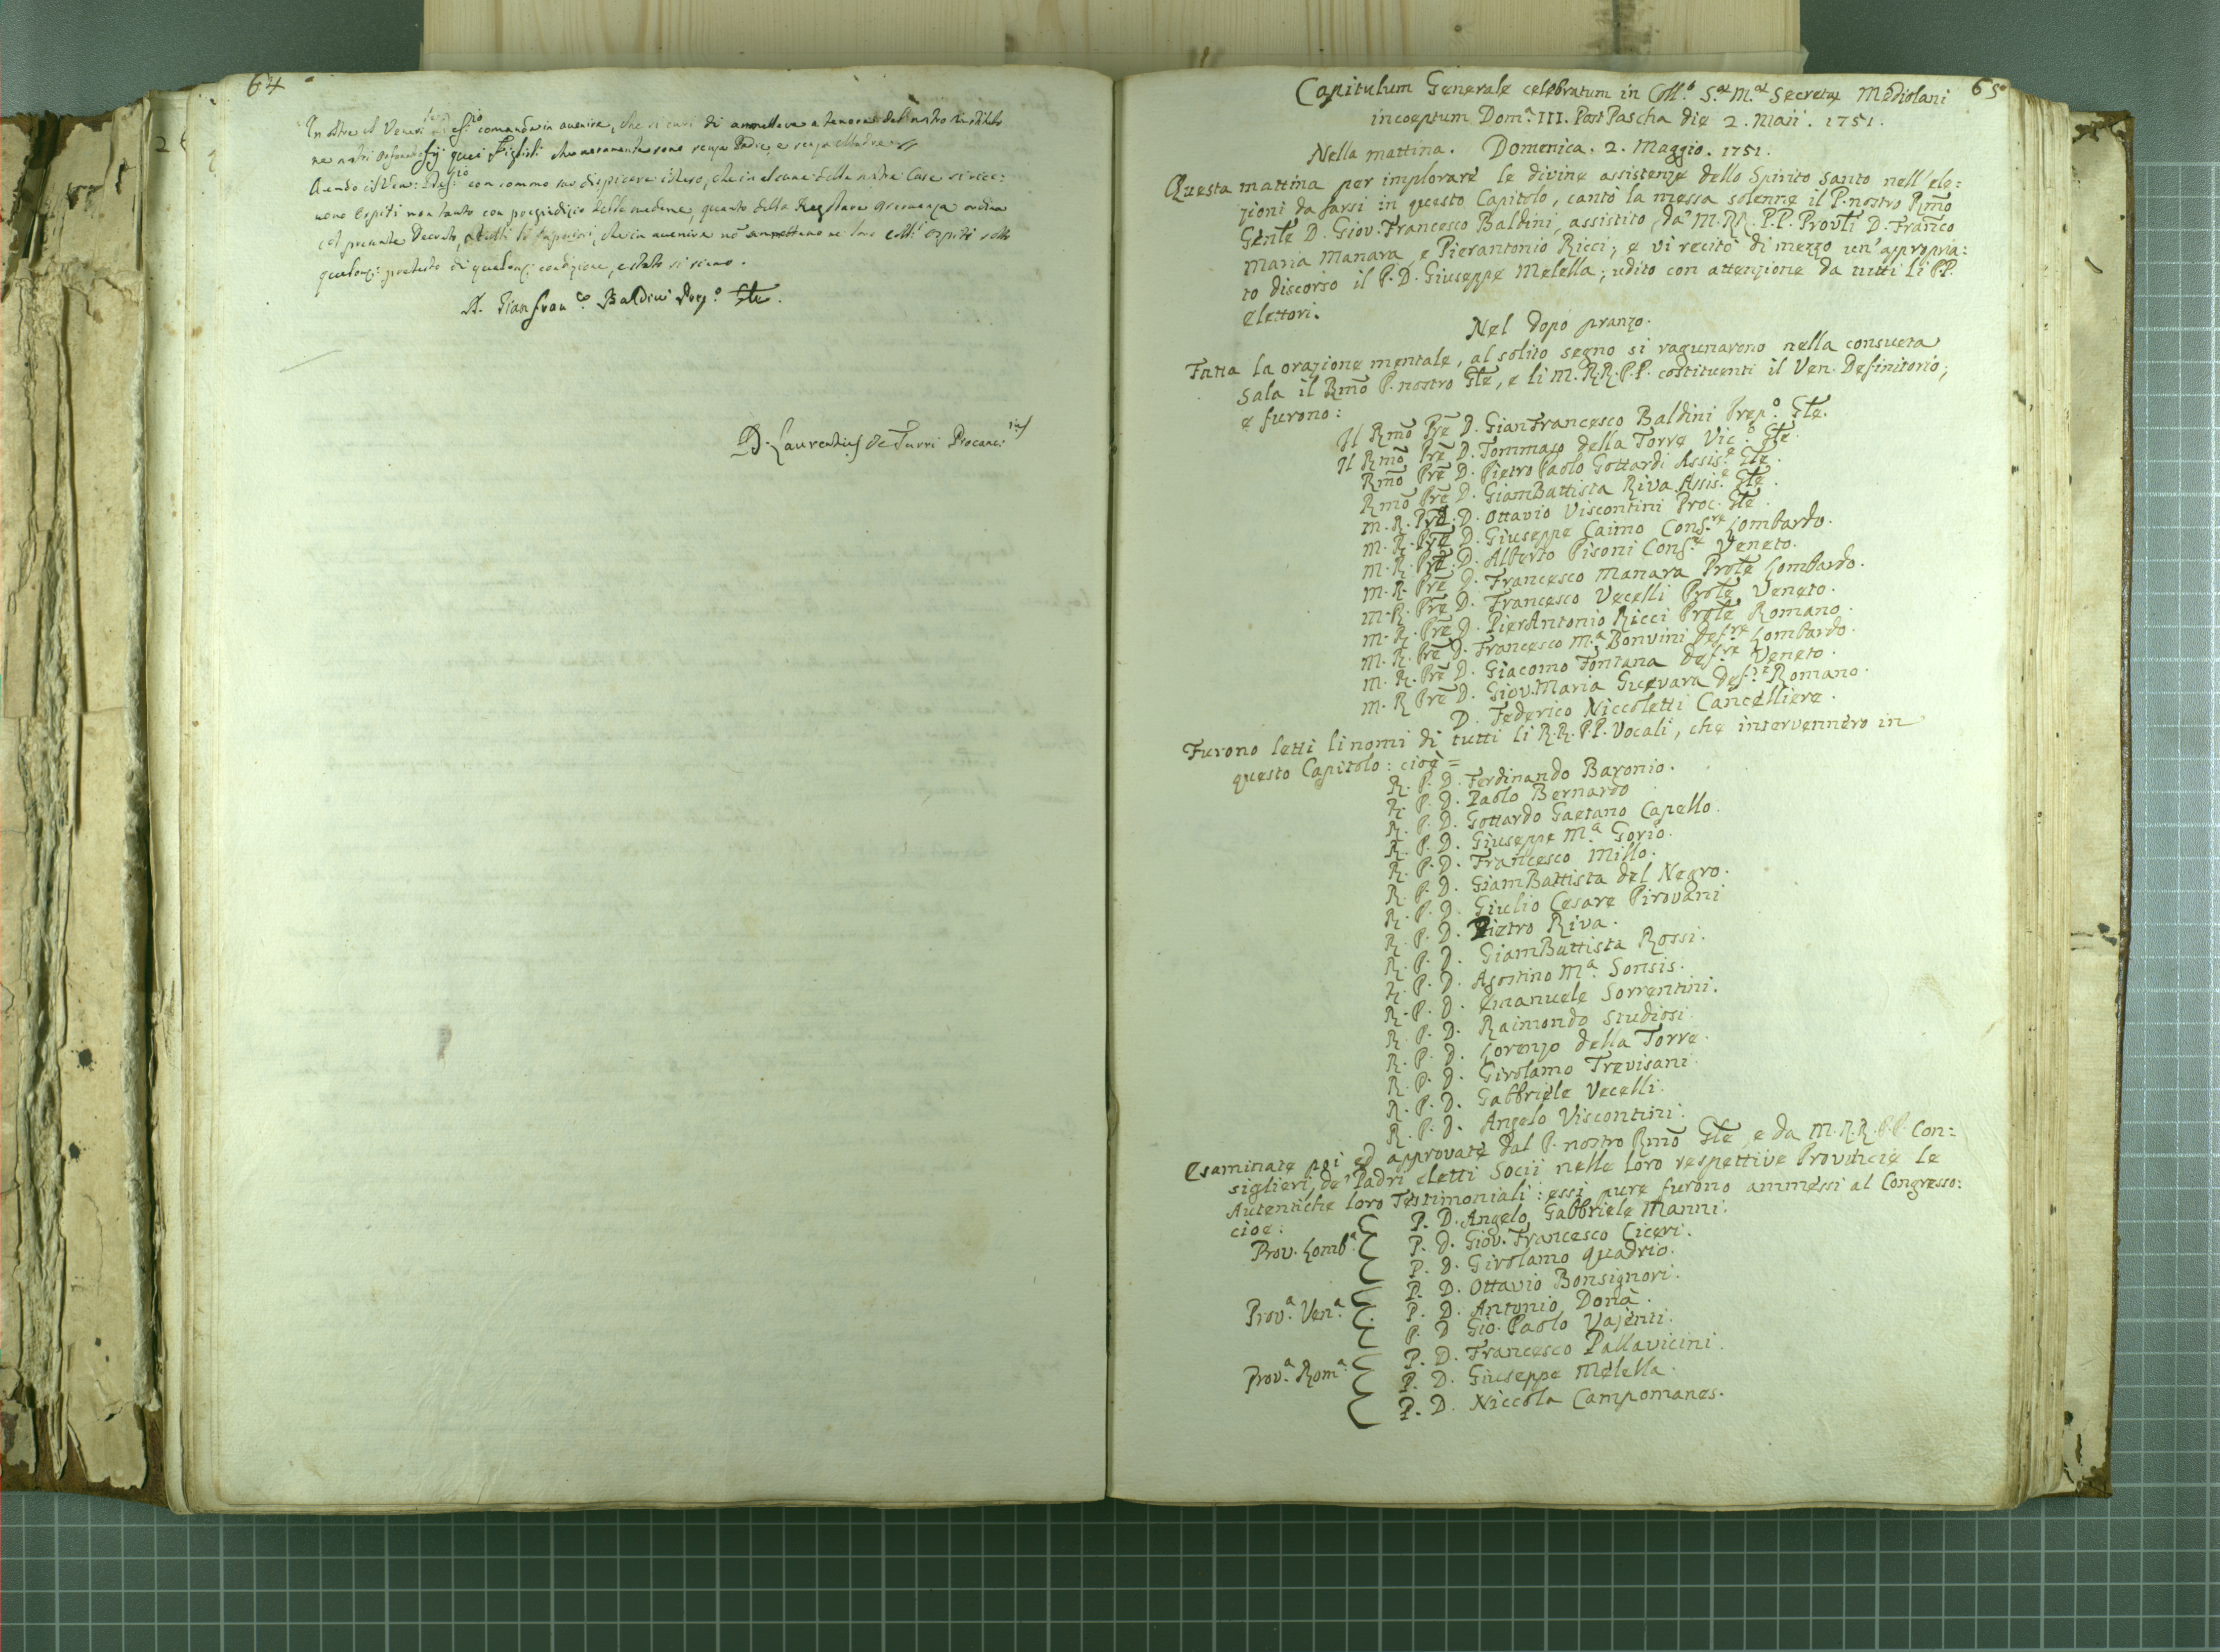 64
In oltre il Vener. Defio comanda in avenire, che si curi di ammettere a tenore del nostro Instituto
ne nostri orfanotrofij quei Figlioli che veramente sono senza Padre, e senza Madre
Avendo il Ven. Defio con sommo suo dispiacere inteso, che in alcune delle nostre Case si rice:
vono Ospiti non tanto con pregiudizio delle medeme, quanto della Regolare Osservanza ordina
col presente Decreto, a tutti li Superiori, che in avenire no ammettano ne loro Colli Ospiti sotto
qualonqe pretesto di qualonqe condizione, e stato si siano.
D. Gianfranco Baldini Prepo Gle.
D. Laurentius de Turri Procanc.ius
65
Capitulum Generale celebratum in Coll.o S.ae M.ae Secretae Mediolani
incoeptum Dom.a III. Post Pascha die 2. Maii. 1751.
Nella mattina. Domenica. 2. Maggio. 1751.
Questa mattina per implorare le divine assistenze dello Spirito Santo nell'ele:
zioni da farsi in questo Capitolo, cantò la messa solenne il P. nostro Rmo
Gente D. Giov. Francesco Baldini, assistito da' M.RR. P.P. Provli D. Franco
Maria Manara, e Pierantonio Ricci; e vi recitò di mezzo un'apropria:
to discorso il P. D. Giuseppe Melella; udito con attenzione da tutti li PP.
elettori.
Nel dopo pranzo.
Fatta la orazione mentale, al solito segno si ragunarono nella consueta
Sala il Rmo P. nostro Gle, e li M.R.R.P.P. costituenti il Ven. Definitorio;
e furono:
Il Rmo Pre D. GianFrancesco Baldini Prep.o Gle.
Il Rmo Pre D. Tommaso della Torre Vic.o Gle.
Rmo Pre D. Pietro Paolo Gottardi Assis.e Gle.
Rmo Pre D. GiamBattista Riva Assis.e Gle.
M. R. Pre D. Ottavio Viscontini Proc. Gle.
M. R. Pre D. Giuseppe Caimo Cons.re Lombardo.
M. R. Pre D. Alberto Pisoni Cons.re Veneto.
M. R. Pre D. Francesco Manara Prole Lombardo.
M. R. Pre D. Francesco Vecelli Prole Veneto.
M. R. Pre D. PierAntonio Ricci Prole Romano.
M. R. Pre D. Francesco M.a Bonvini Def.re Lombardo.
M. R. Pre D. Giacomo Fontana Def.re Veneto.
M. R Pre D. Giov. Maria Guevara Def.re Romano.
D. Federico Niccoletti Cancelliere.
Furono letti li nomi di tutti li R.R. P.P. Vocali, che intervennero in
questo Capitolo: cioè =
R. P. D. Ferdinando Baronio.
R. P. D. Paolo Bernardo
R. P. D. Gottardo Gaetano Capello.
R. P. D. Giuseppe M.a Gorio.
R. P. D. Francesco Millo.
R. P. D. GiamBattista del Negro.
R. P. D. Giulio Cesare Pirovani
R. P. D. Pietro Riva.
R. P. D. GiamBattista Rossi.
R. P. D. Agostino M.a Sonsis.
R. P. D. Emanuele Sorrentini.
R. P. D. Raimondo Studiosi
R. P. D. Lorenzo della Torre.
R. P. D. Girolamo Trevisani
R. P. D. Gabbriele Vecelli.
R. P. D. Angelo Viscontini.
Esaminate poi ed approvate dal P. nostro Rmo Gle, e da M.R.R. P.P. Con:
siglieri, de' Padri eletti Socii nelle loro respettive Provincie le
Autentiche loro Testimoniali: essi pure furono ammessi al Congresso:
cioe:
P. D. Angelo Gabbriele Manni.
Prov. Lomb.a P. D. Giov. Francesco Ciceri.
P. D. Girolamo Quadrio.
P. D. Ottavio Bonsignori.
Prov.a Ven.a P. D. Antonio Donà.
P. D Gio. Paolo Vajenti.
P. D. Francesco Pallavicini.
Prov.a Rom.a P. D. Giuseppe Melella.
P. D. Niccola Campomanes.